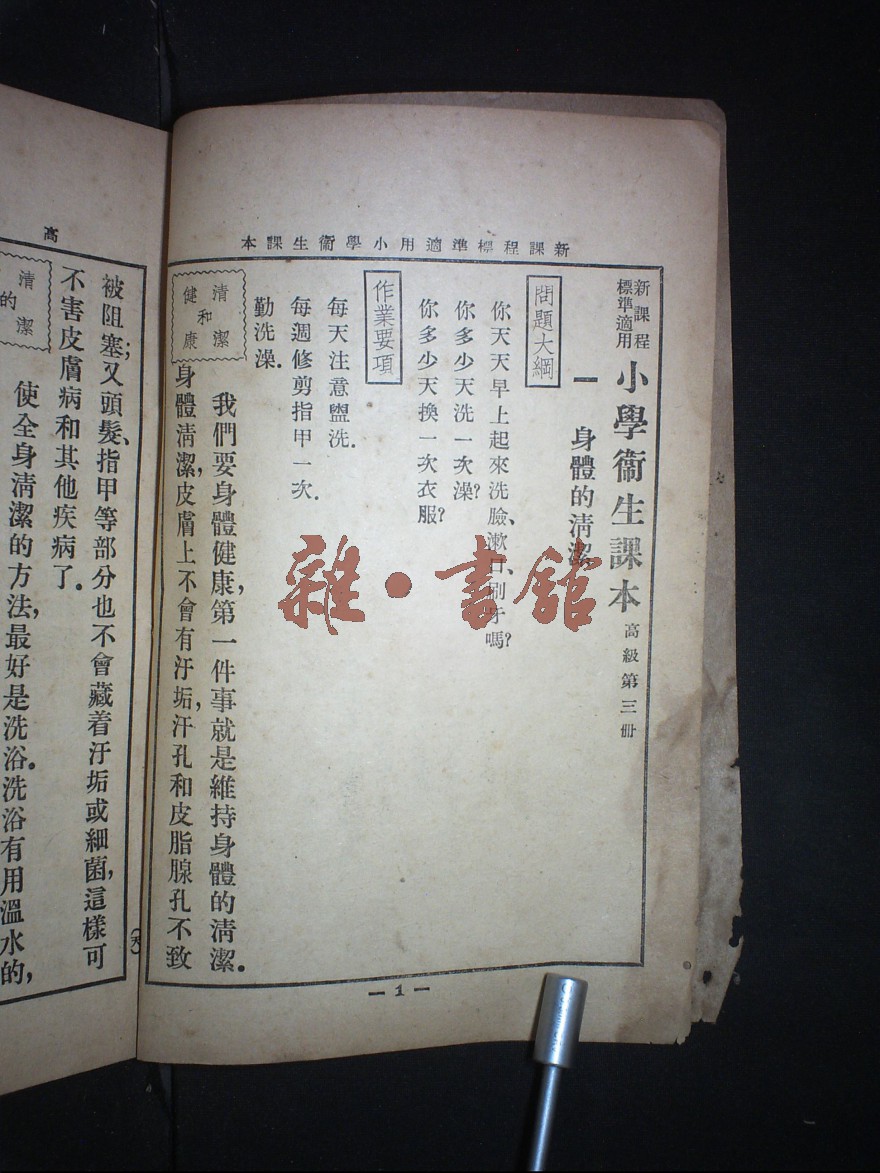 新課程標準適用小學衞生課本
新課程
標準適用
小學衞生課本 高級第三册
一 身體的淸潔
問題大綱
你天天早上起來洗臉、漱口、刷牙嗎?
你多少天洗一次澡?
你多少天換一次衣服?
作業要項
每天注意盥洗.
每週修剪指甲一次.
勤洗澡.
清潔
和
健康
我們要身體健康,第一件事就是維持身體的淸潔.
身體淸潔,皮膚上不會有汙垢,汗孔和皮脂腺孔不致
— 1 —
雜·書館
高
被阻塞;又頭髮、指甲等部分也不會藏着汙垢或細菌,這樣可
不害皮膚病和其他疾病了.
清潔
的
使全身淸潔的方法,最好是洗浴.洗浴有用溫水的,